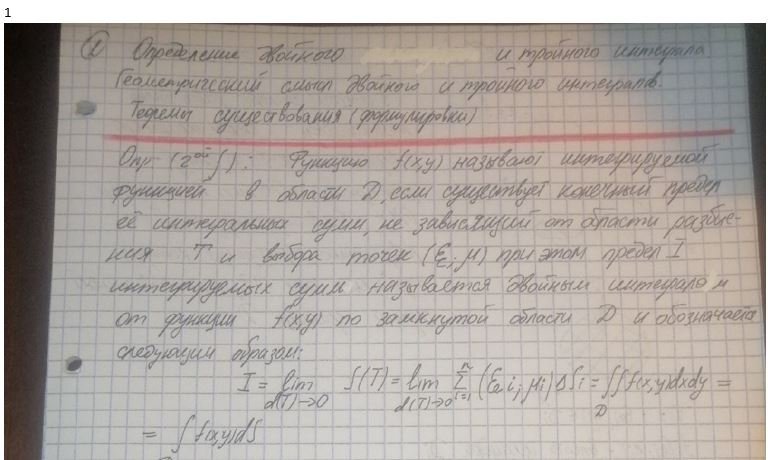 1
① Определение двойного и тройного интеграла
Геометрический смысл двойного и тройного интегралов.
Теоремы существования (формулировки)
Опр (2ой ∫): Функцию f(x,y) называют интегрируемой
функцией в области D, если существует конечный предел
её интегральных сумм, не зависящий от области разбие-
ния T и выбора точек (ξ; μ) при этом предел I
интегрируемых сумм называется двойным интегралом
от функции f(x,y) по замкнутой области D и обозначается
следующим образом:
I = lim d(T)→0 S(T) = lim d(T)→0 Σ i=1 n (ξi; μi) ΔSi = ∬ D f(x,y)dxdy =
= ∫ f(x,y)dS